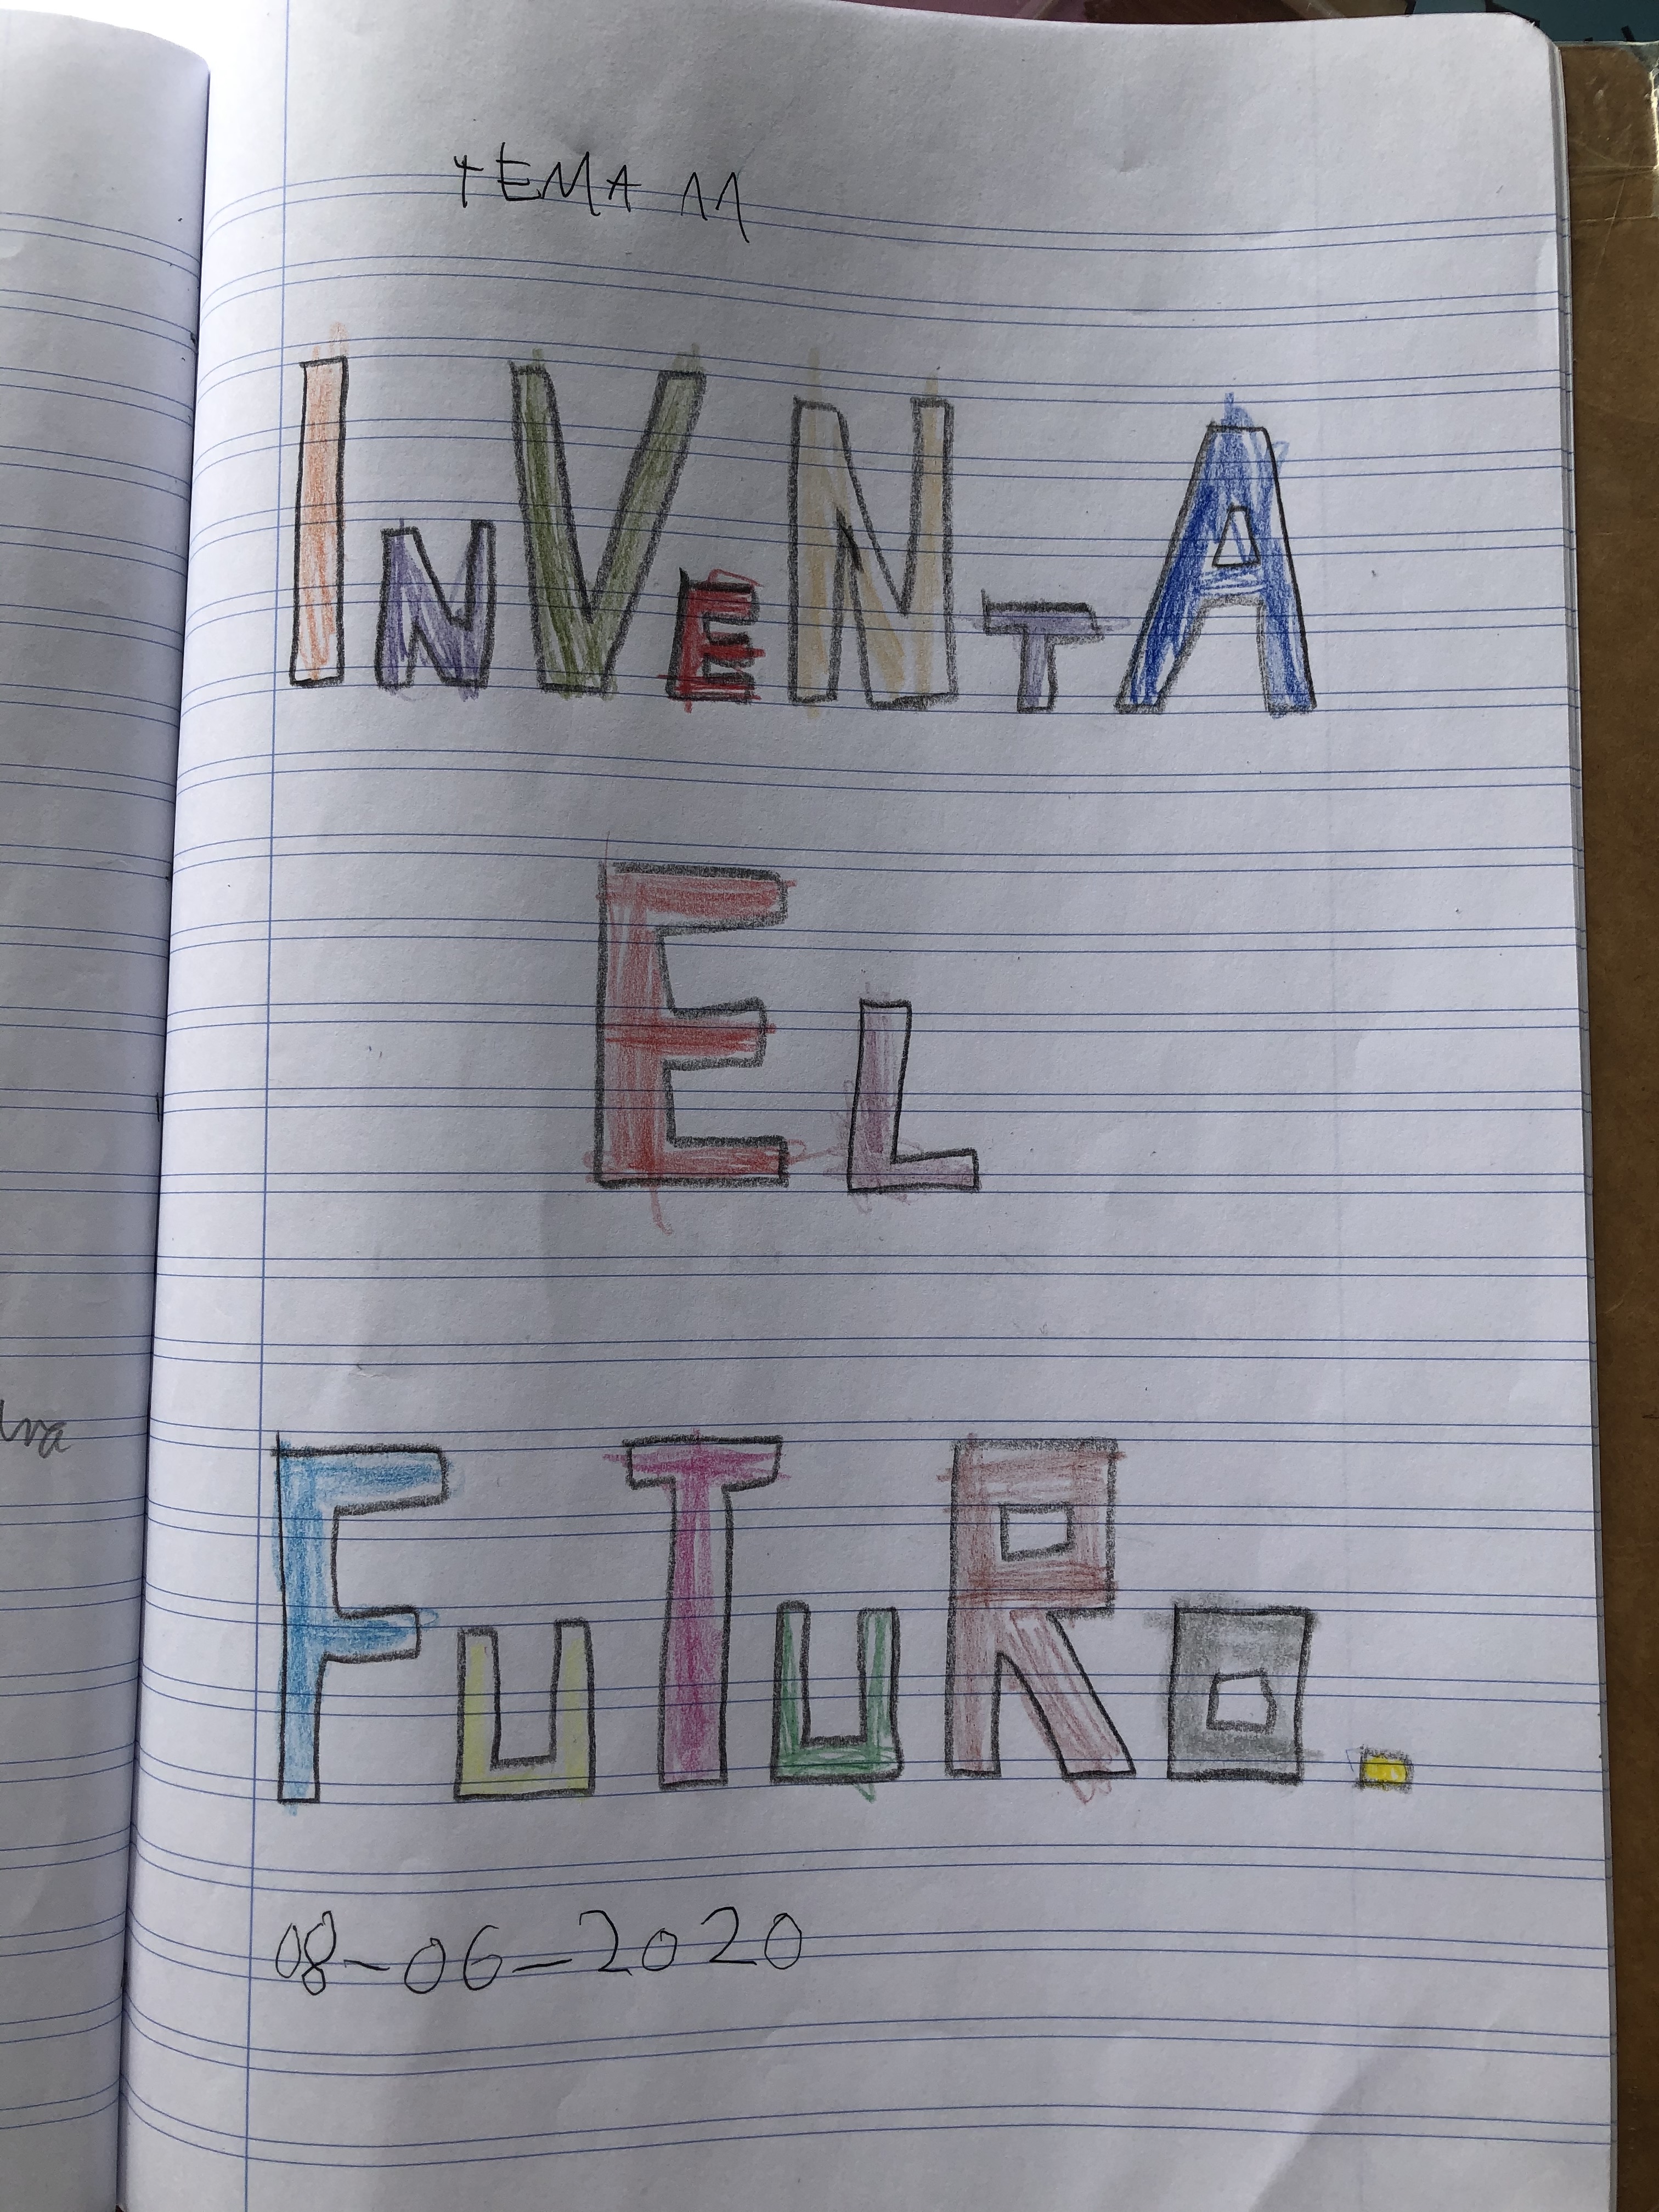 TEMA 11
INVENTA
EL
FUTURO.
08-06-2020